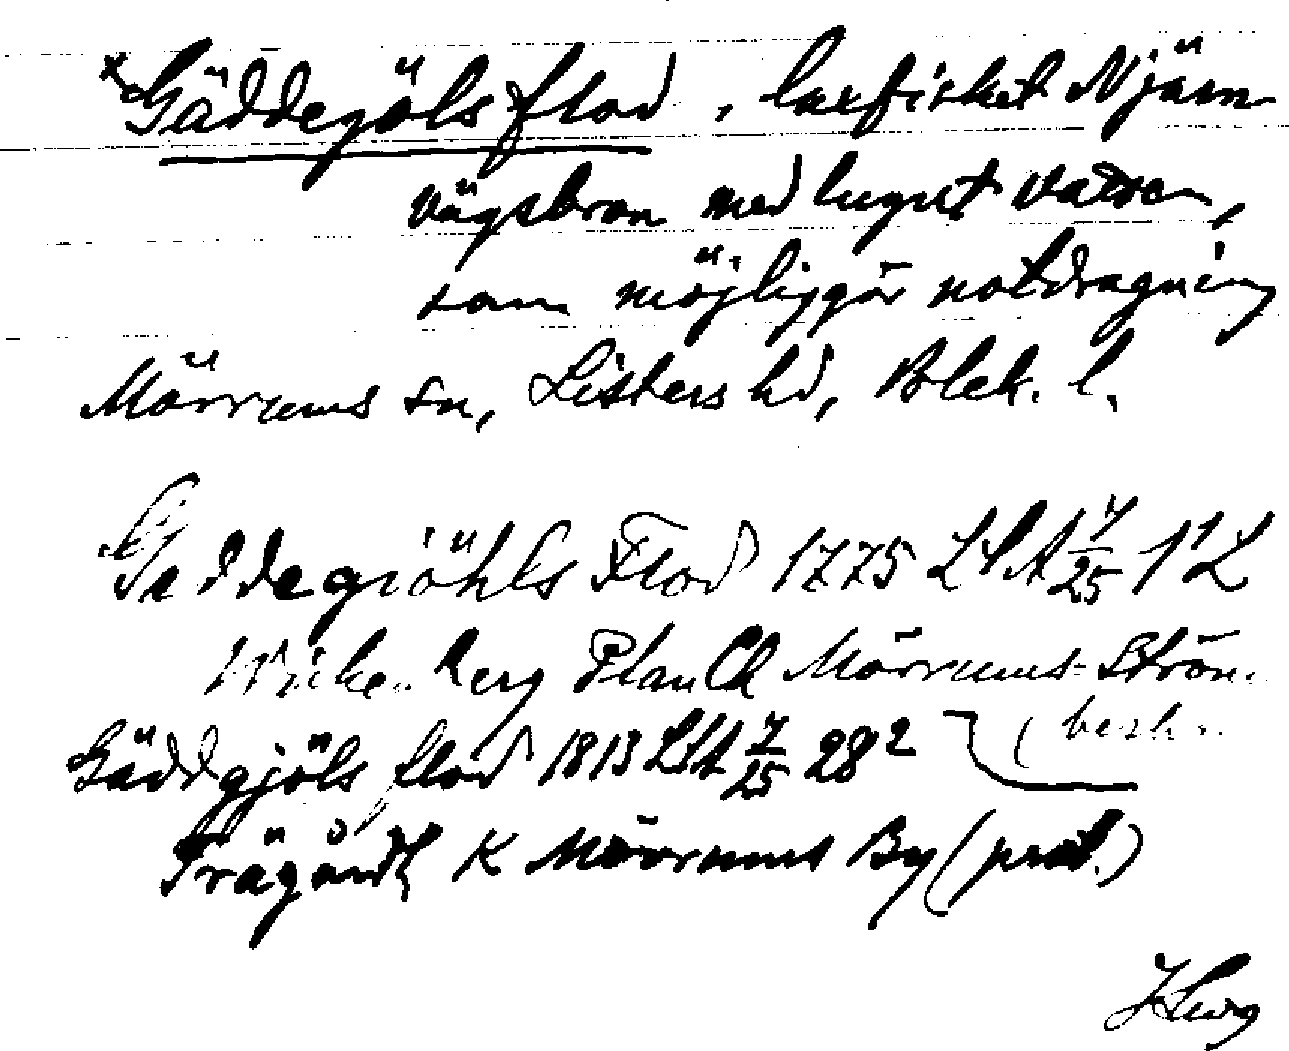 * Gäddegöls flod, laxfisket N järn
vägsbron med lugnt vatten,
som möjliggör notdragning
Mörrums sn, Listers hd, Blek. l.
Geddegiöhls Flod 1775 LSA 7/25 1¹ L
Wickenberg Plan Ch Mörrums-Ström.
(beskr.
Gäddgjöls flod 1813 LSA 7/25 28²
Trägårdh K Mörrums By (prot.)